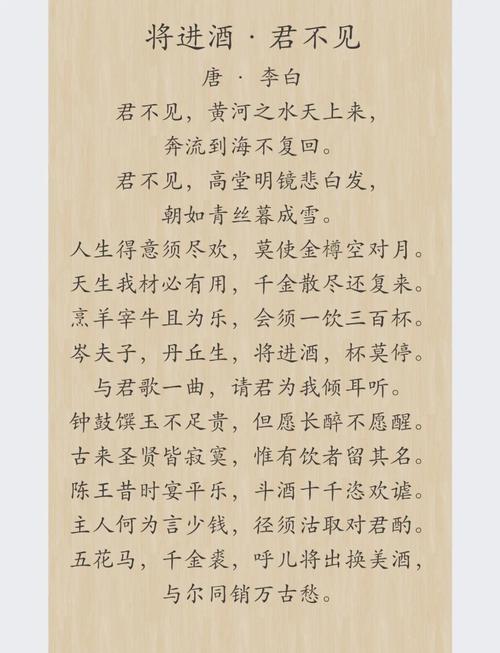 将进酒·君不见
唐·李白
君不见，黄河之水天上来，
奔流到海不复回。
君不见，高堂明镜悲白发，
朝如青丝暮成雪。
人生得意须尽欢，莫使金樽空对月。
天生我材必有用，千金散尽还复来。
烹羊宰牛且为乐，会须一饮三百杯。
岑夫子，丹丘生，将进酒，杯莫停。
与君歌一曲，请君为我倾耳听。
钟鼓馔玉不足贵，但愿长醉不愿醒。
古来圣贤皆寂寞，惟有饮者留其名。
陈王昔时宴平乐，斗酒十千恣欢谑。
主人何为言少钱，径须沽取对君酌。
五花马，千金裘，呼儿将出换美酒，
与尔同销万古愁。